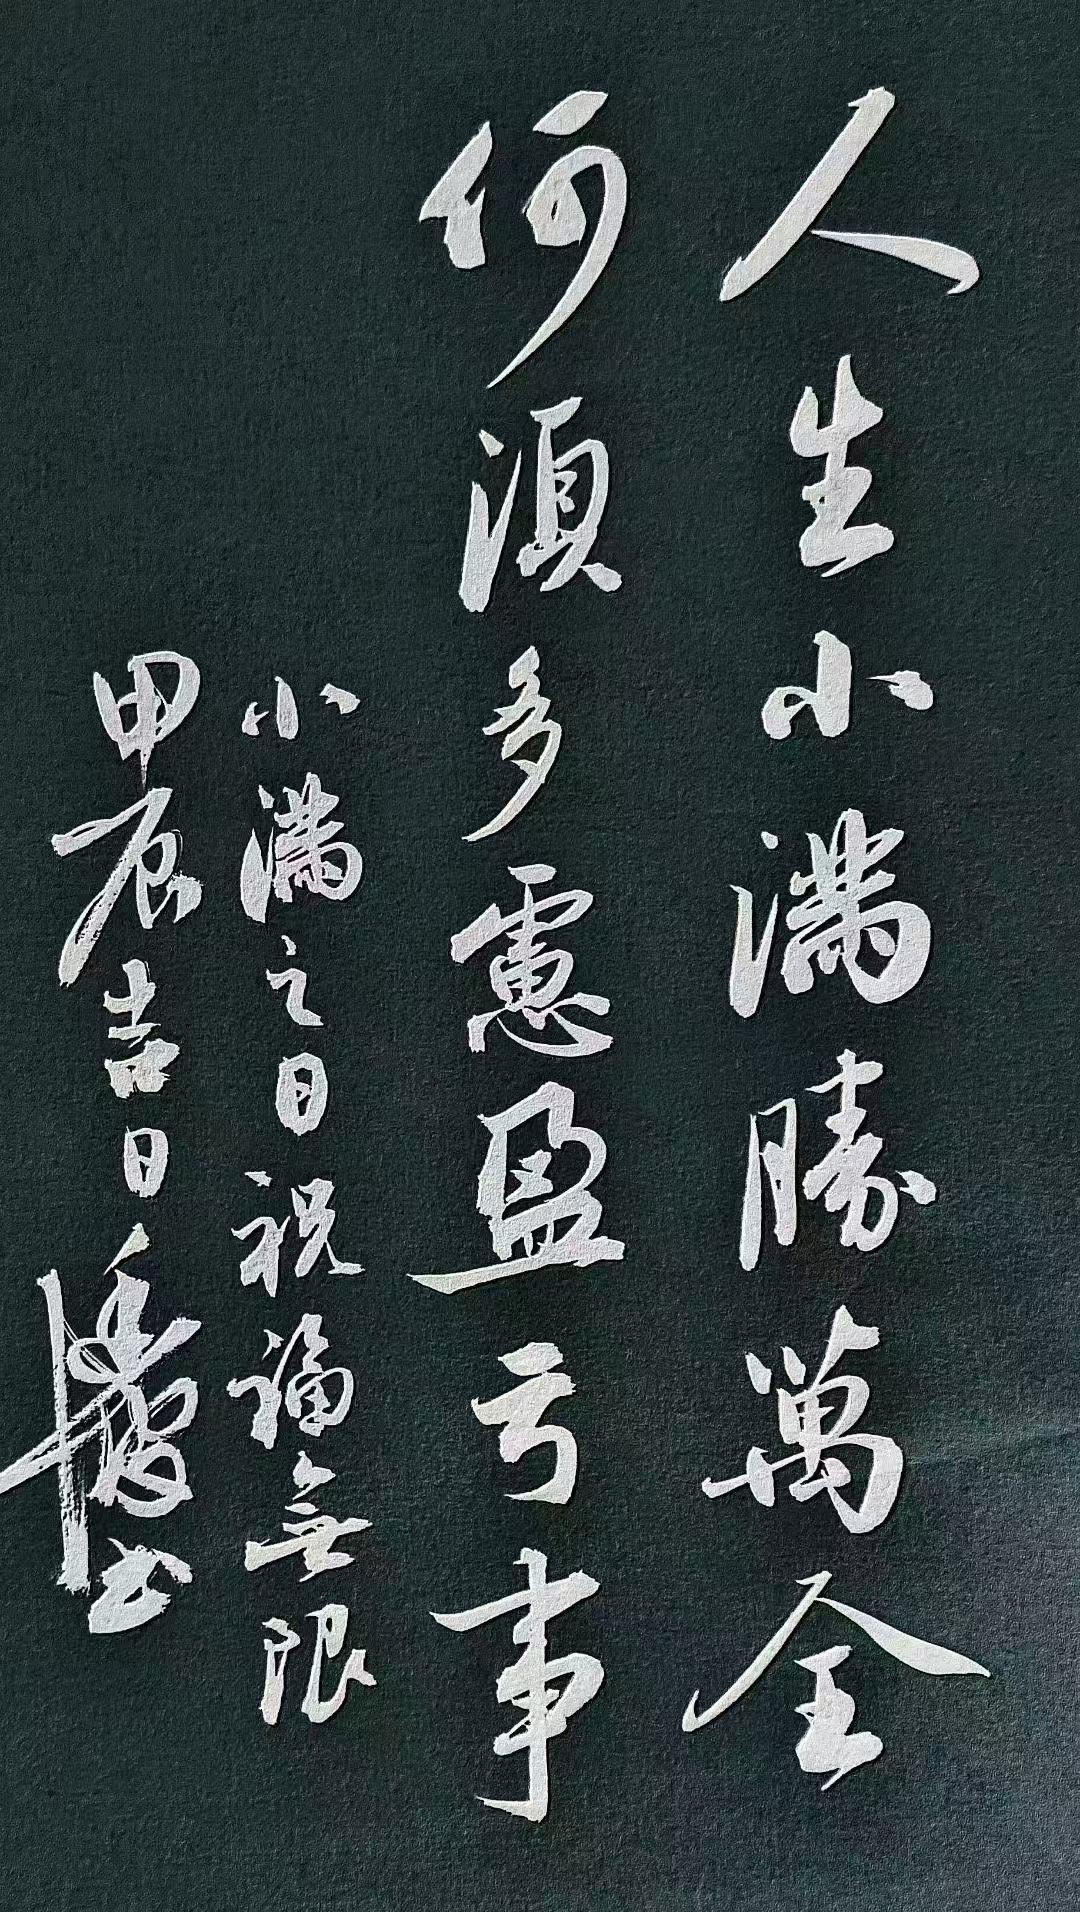 人生小滿勝萬全
何須多慮盈亏事
小滿之日祝福無限
甲辰吉日
书